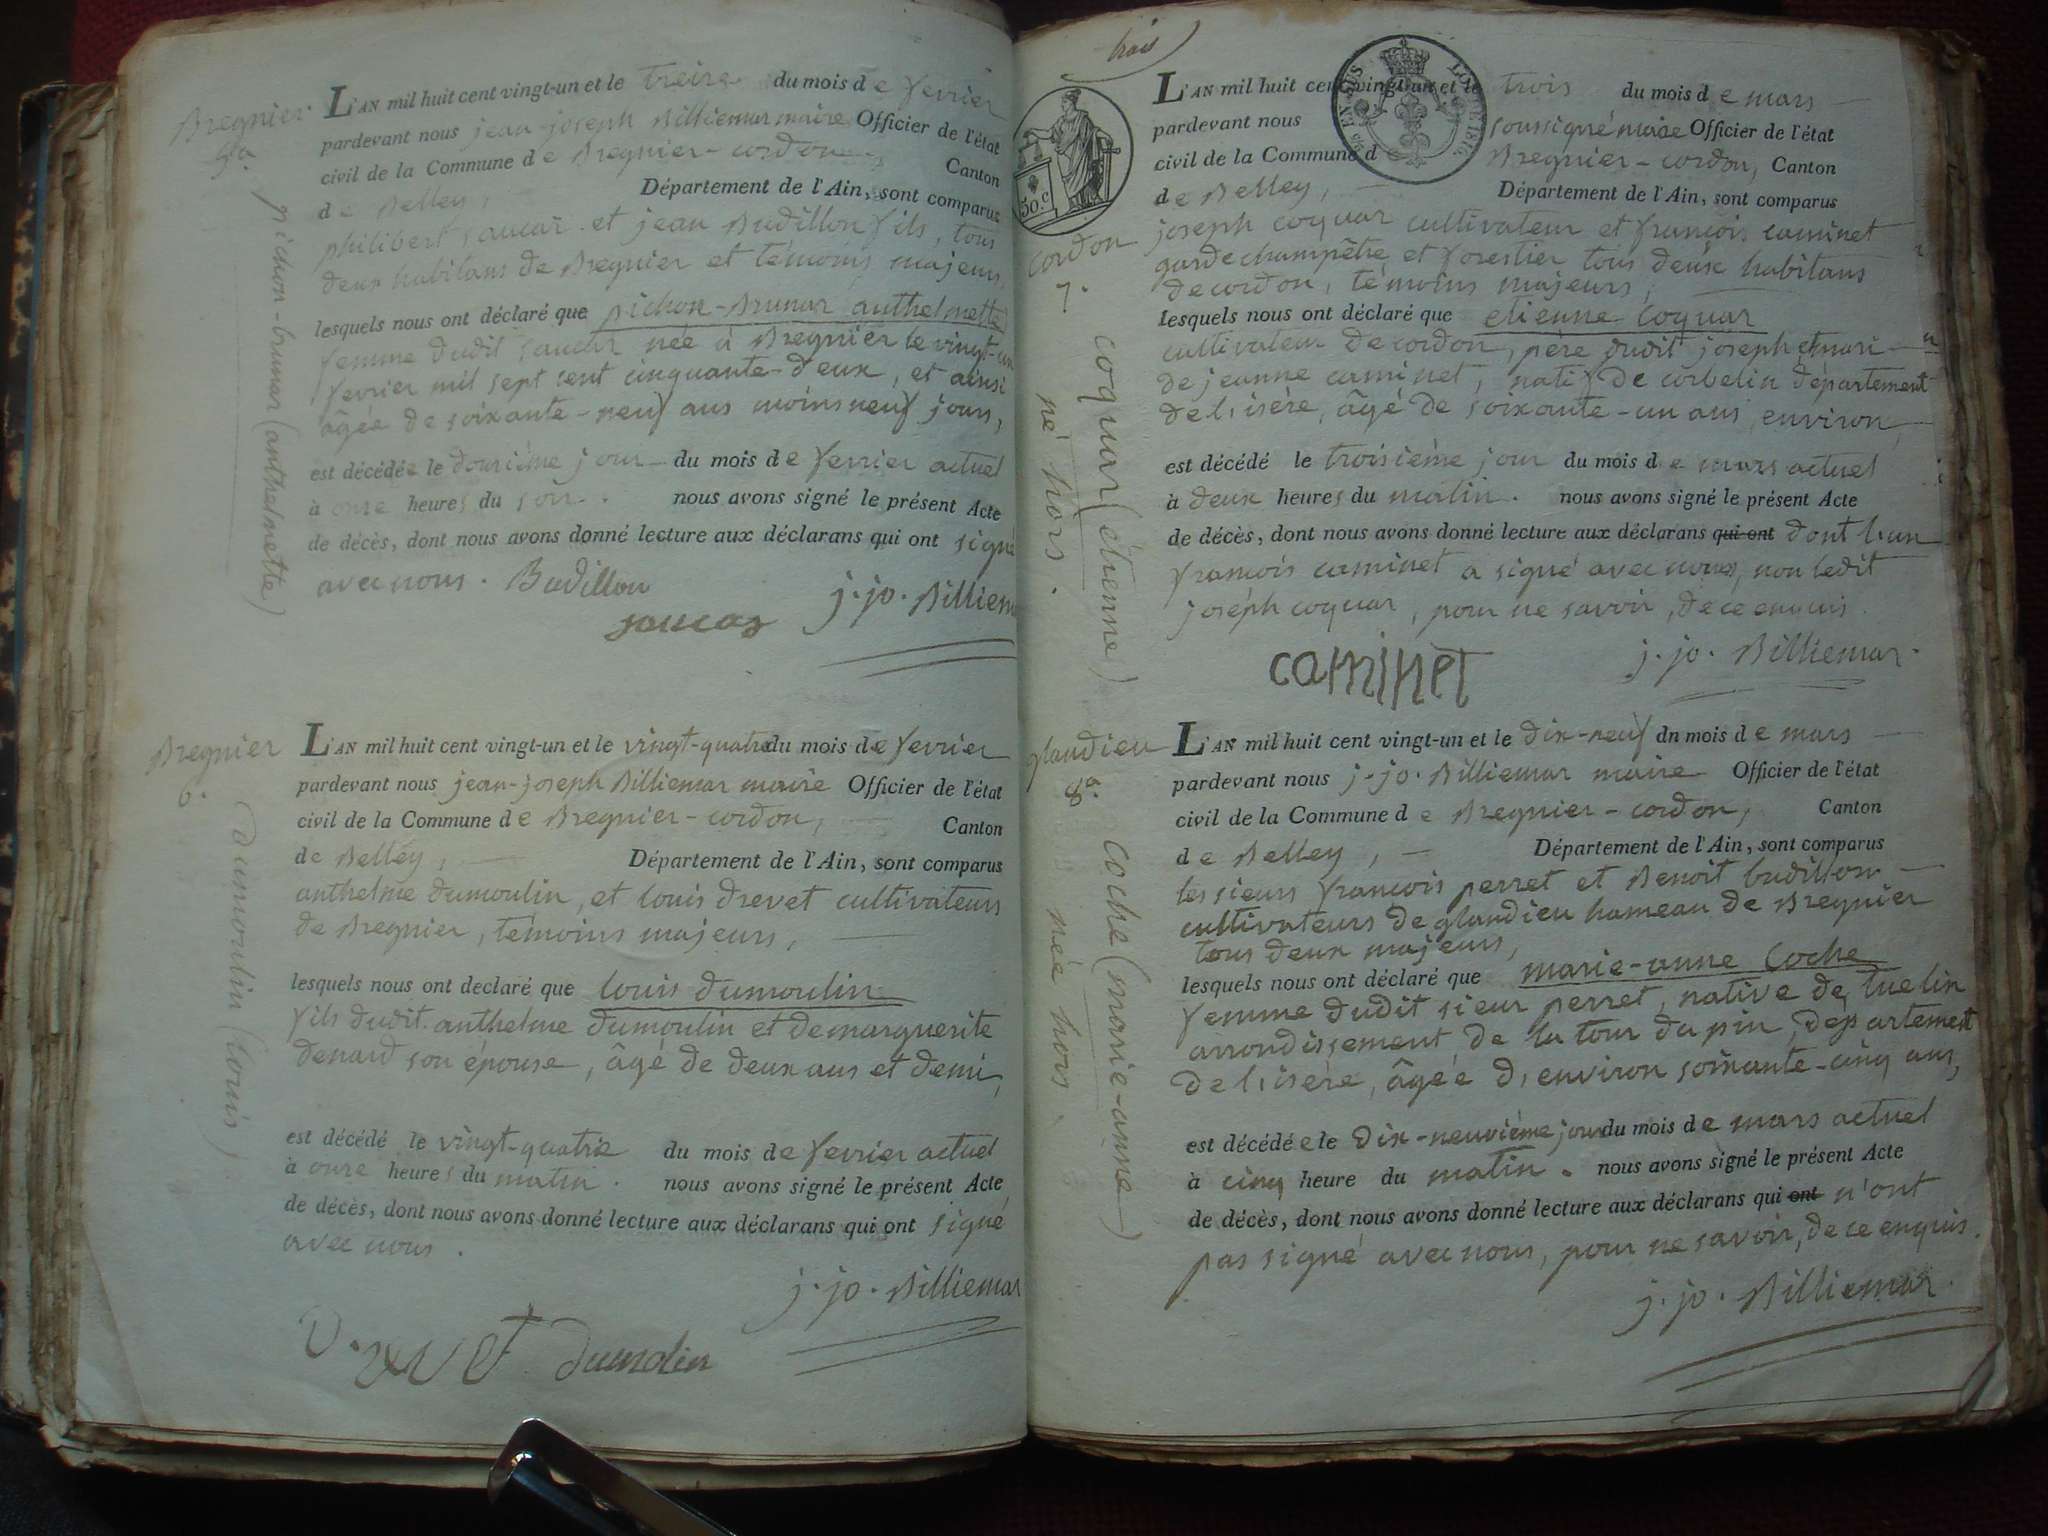 Bregnier
5a.
pichon-brunar (anthelmette)
L'AN mil huit cent vingt-un et le treize du mois de fevrier
pardevant nous jean-joseph Billiemar maire Officier de l'état
civil de la Commune de Bregnier-cordon Canton
de Belley, Département de l'Ain, sont comparus
philibert saucaz et jean Budillon fils, tous
deux habitans de Bregnier et témoins majeurs,
lesquels nous ont déclaré que pichon-Brunar anthelmette
femme dudit saucaz née à Bregnier le vingt-un
fevrier mil sept cent cinquante-deux, et ainsi
âgée de soixante-neuf ans moins neuf jours,
est décédée le douzième jour du mois de fevrier actuel
à onze heures du soir. nous avons signé le présent Acte
de décès, dont nous avons donné lecture aux déclarans qui ont signé
avec nous. Budillon
saucaz j. jo. Billiem
Bregnier
6.
Dumoulin (louis)
L'AN mil huit cent vingt-un et le vingt-quatre du mois de fevrier
pardevant nous jean-joseph Billiemar maire Officier de l'état
civil de la Commune de Bregnier-cordon, Canton
de Belley, Département de l'Ain, sont comparus
anthelme dumoulin, et louis drevet cultivateurs
de Bregnier, témoins majeurs,
lesquels nous ont declaré que louis dumoulin
fils dudit anthelme dumoulin et de marguerite
denard son épouse, âgé de deux ans et demi,
est décédé le vingt-quatre du mois de fevrier actuel
à onze heures du matin. nous avons signé le présent Acte
de décès, dont nous avons donné lecture aux déclarans qui ont signé
avec nous.
j. jo. Billiemar
dumolin
trois
50 c.
cordon
7.
coquar (étienne)
né hors.
L'AN mil huit cent vingt-un et le trois du mois de mars
pardevant nous soussigné maire Officier de l'état
civil de la Commune de Bregnier-cordon, Canton
de Belley, Département de l'Ain, sont comparus
joseph coquar cultivateur et françois caminet
garde champêtre et forestier tous deux habitans
de cordon, témoins majeurs,
lesquels nous ont déclaré que etienne coquar
cultivateur de cordon, père dudit joseph et mari
de jeanne caminet, natif de corbelin département
de l'isère, âgé de soixante-un ans, environ
est décédé le troisième jour du mois de mars actuel
à deux heures du matin. nous avons signé le présent Acte
de décès, dont nous avons donné lecture aux déclarans qui ont dont l'un
françois caminet a signé avec nous, non ledit
joseph coquar, pour ne savoir, de ce enquis.
caminet j. jo. Billiemar.
glandieu
8a.
coche (marie-anne)
née hors.
L'AN mil huit cent vingt-un et le dix-neuf dn mois de mars
pardevant nous j. jo. Billiemar maire Officier de l'état
civil de la Commune de Bregnier-cordon, Canton
de Belley, Département de l'Ain, sont comparus
les sieurs françois perret et Benoit budillon
cultivateurs de glandieu hameau de Bregnier
tous deux majeurs,
lesquels nous ont déclaré que marie-anne Coche
femme dudit sieur perret, native de tuelin
arrondissement de la tour du pin, département
de l'isère, âgée d'environ soixante-cinq ans,
est décédée le dix-neuvième jour du mois de mars actuel
à cinq heure du matin. nous avons signé le présent Acte
de décès, dont nous avons donné lecture aux déclarans qui ont n'ont
pas signé avec nous, pour ne savoir, de ce enquis.
j. jo. Billiemar